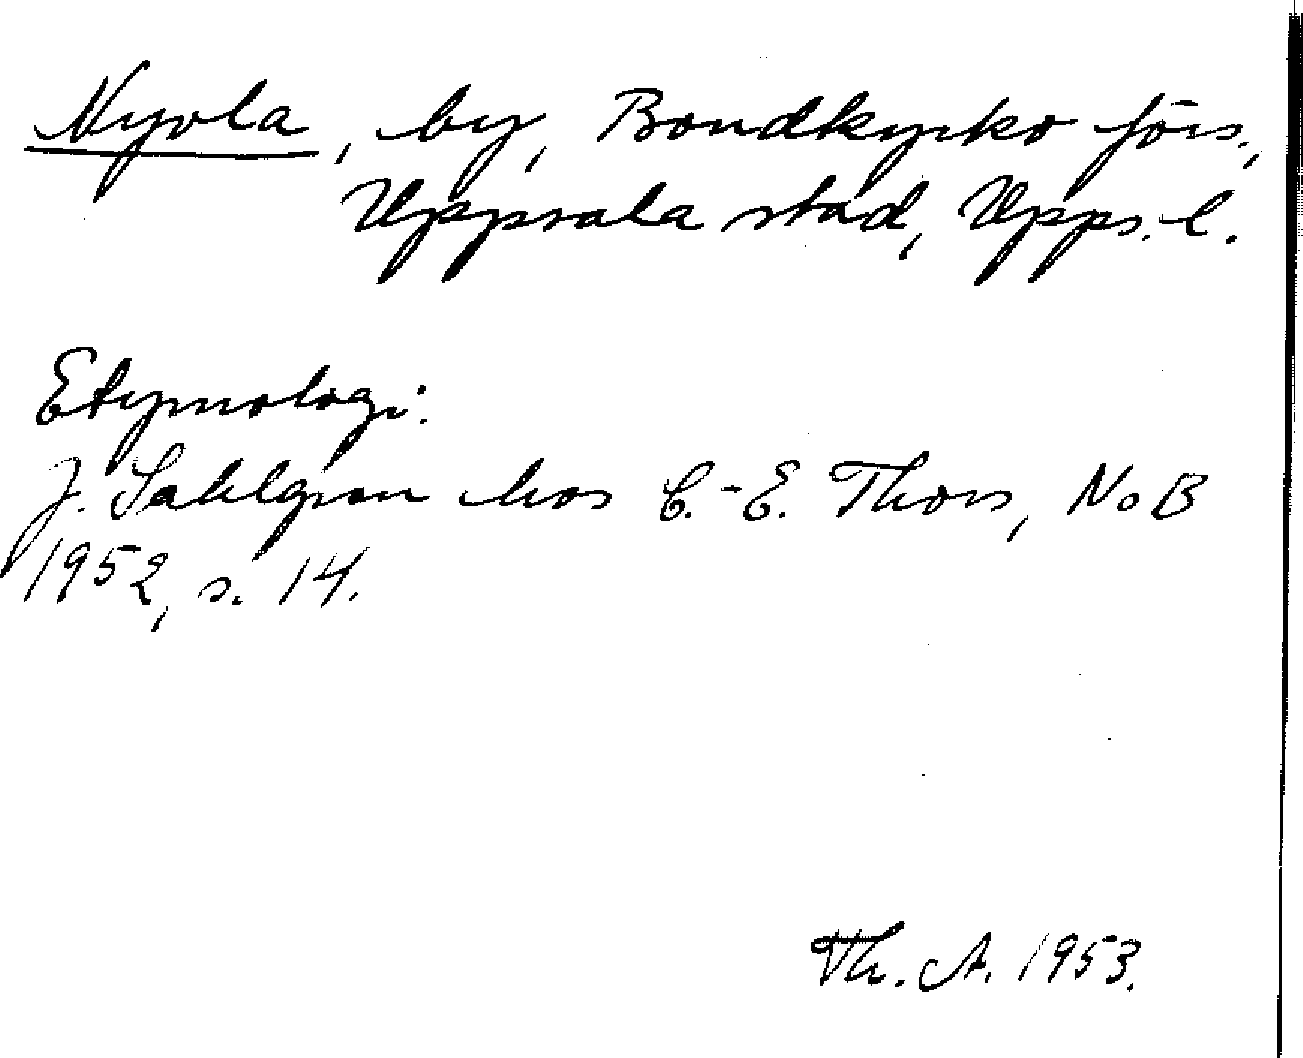 Nyvla, by, Bondkyrko förs.,
Uppsala stad, Upps. l.
Etymologi:
J. Sahlgren hos C.-E. Thors, NoB
1952, s. 14.
Th. A. 1953.